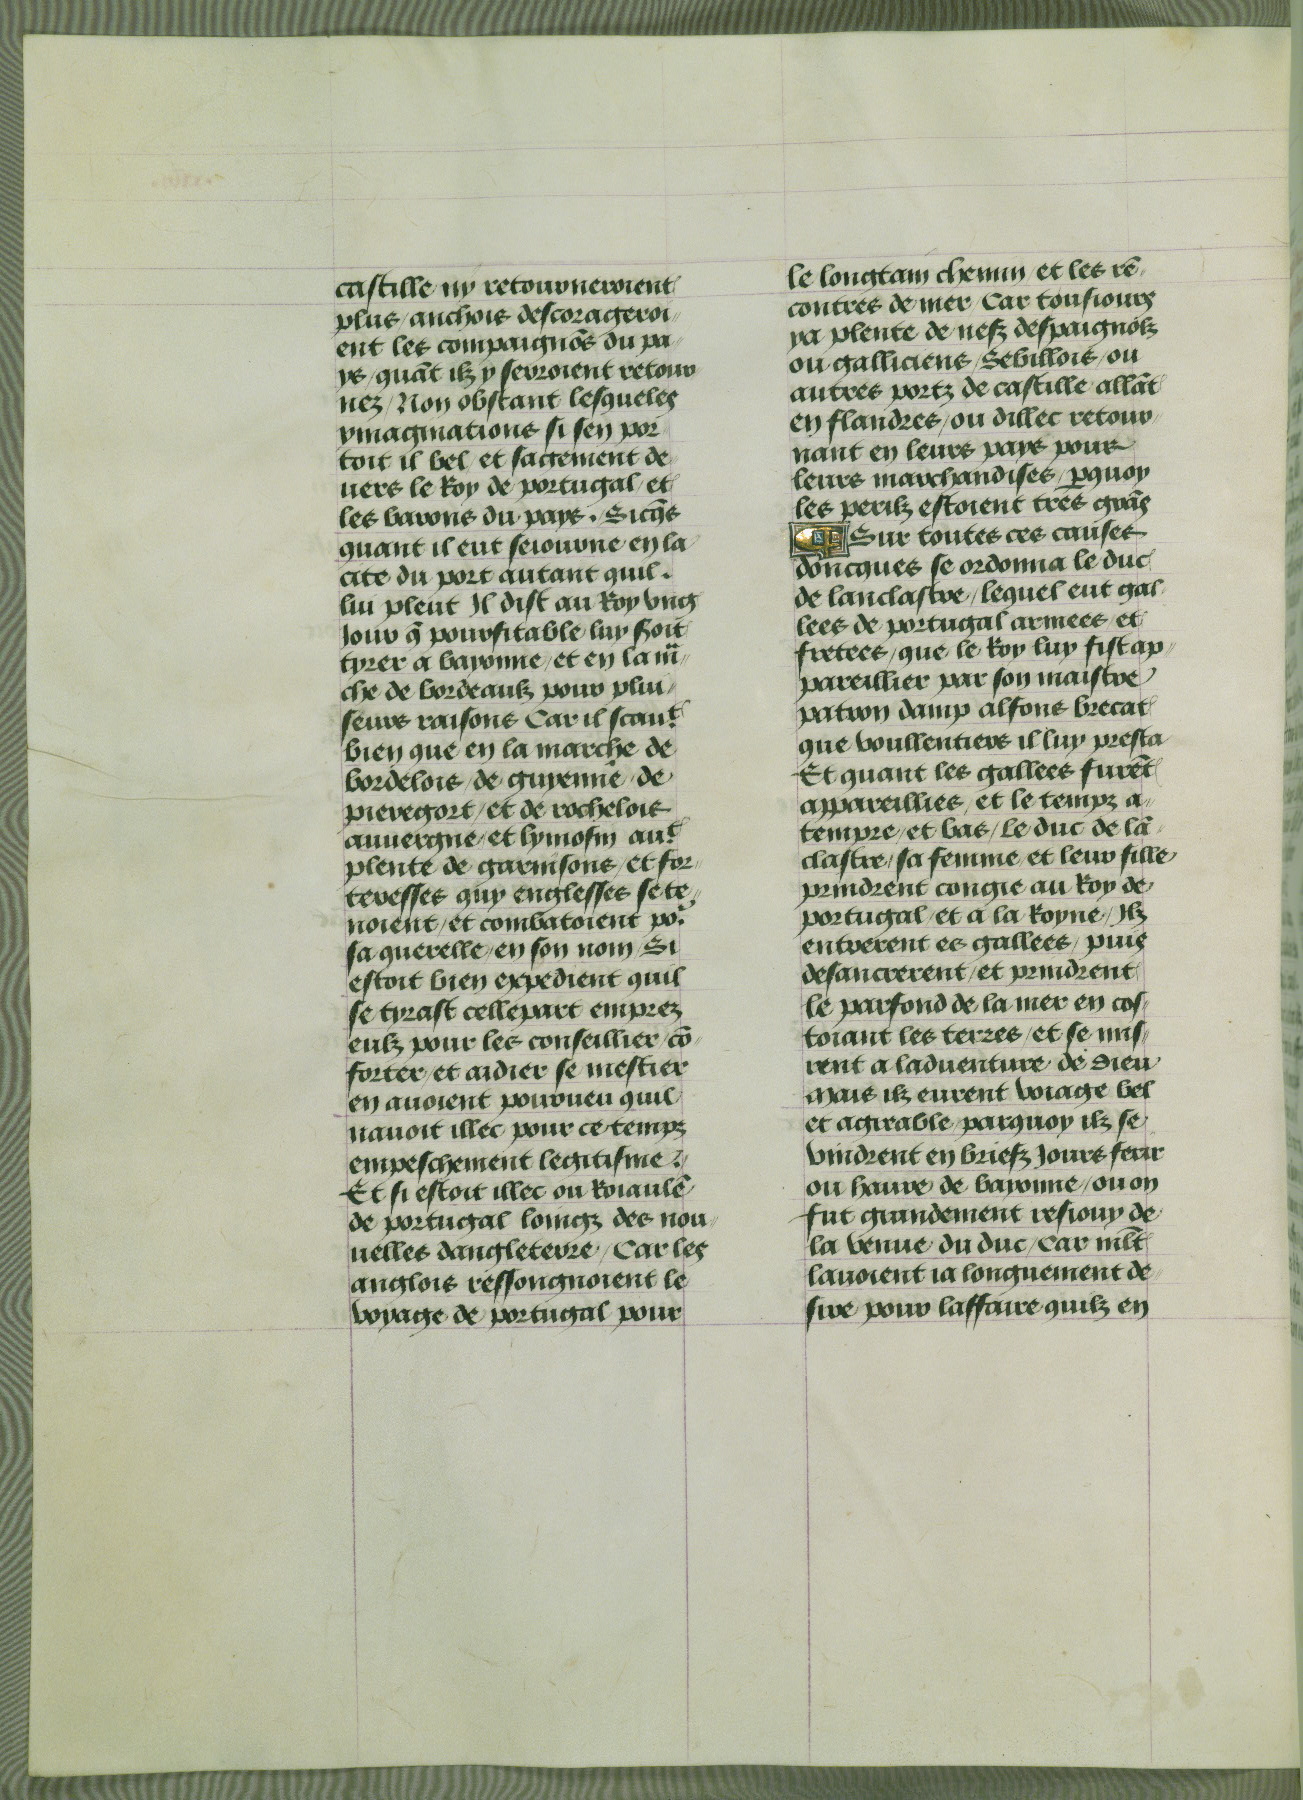 castille / ny retourneroient
plus / anchois descorageroi //
ent les compaignōs du pa //
ys / quāt ilz y seroient retour
nez / Non obstant lesqueles
ymaginations si sen por
toit il bel et sagement de
uers le Roy de portugal et
les barons du pays . Sicq̄s
quant il eut seiourne en la
cite du port autant quil .
lui pleut Il dist au Roy vng
Jour q̄ pourfitable luy seoit
tyrer a bayonne / et en la m̄ //
che de bordeaulz pour plui //
seurs raisons Car il scaut
bien que en la marche de
bordelois / de guyenne / de
pieregort / et de rochelois
auuergne / et lymosin aut
plente de garnisons / et for //
teresses quy englesses se te //
noient / et combatoient po2
sa querelle / en son nom / Si
estoit bien expedient quil
se tyrast cellepart emprez
eulz pour les conseillier / cō //
forter / et aidier se mestier
en auoient pourueu quil
nauoit illec pour ce temps
empeschement legitisme
Et si estoit illec ou Roiaulē
de portugal loingz des nou //
uelles dangleterre / Car les
anglois ressongnoient le
voyage de portugal pour
le longtain chemin et les rē //
contres de mer / Car tousiours
ya plente de nefz despaignolz
ou galliciens / Sebillois / ou
autres portz de castille allāt
en flandres / ou dillec retour //
nant en leurs pays pour
leurs marchandises / p̱quoy
les perilz estoient tres grās
Sur toutes ces causes
doncques se ordonna le duc
de lanclastre / lequel eut gal
lees de portugal armees et
fretees / que le Roy luy fist ap //
pareillier par son maistre
patron damp alfons brecat
que voullentiers il luy presta
Et quant les gallees furēt
appareillies / et le temps a //
tempre / et bas / Le duc de lā //
clastre / sa femme / et leur fille
prindrent congie au Roy de
portugal / et a la Royne / Ilz
entrerent es gallees / puis
desancrerent / et prindrent
le parfond de la mer en cos //
toiant les terres / et se mis //
rent a laduenture de dieu
Mais ilz eurent voiage bel
et agreable / parquoy ilz se
vindrent en briefz Jours ferir
ou haure de bayonne / ou on
fut grandement resiouy de
la venue du duc / Car mlt̄
lauoient ia longuement de //
sire pour laffaire quilz en